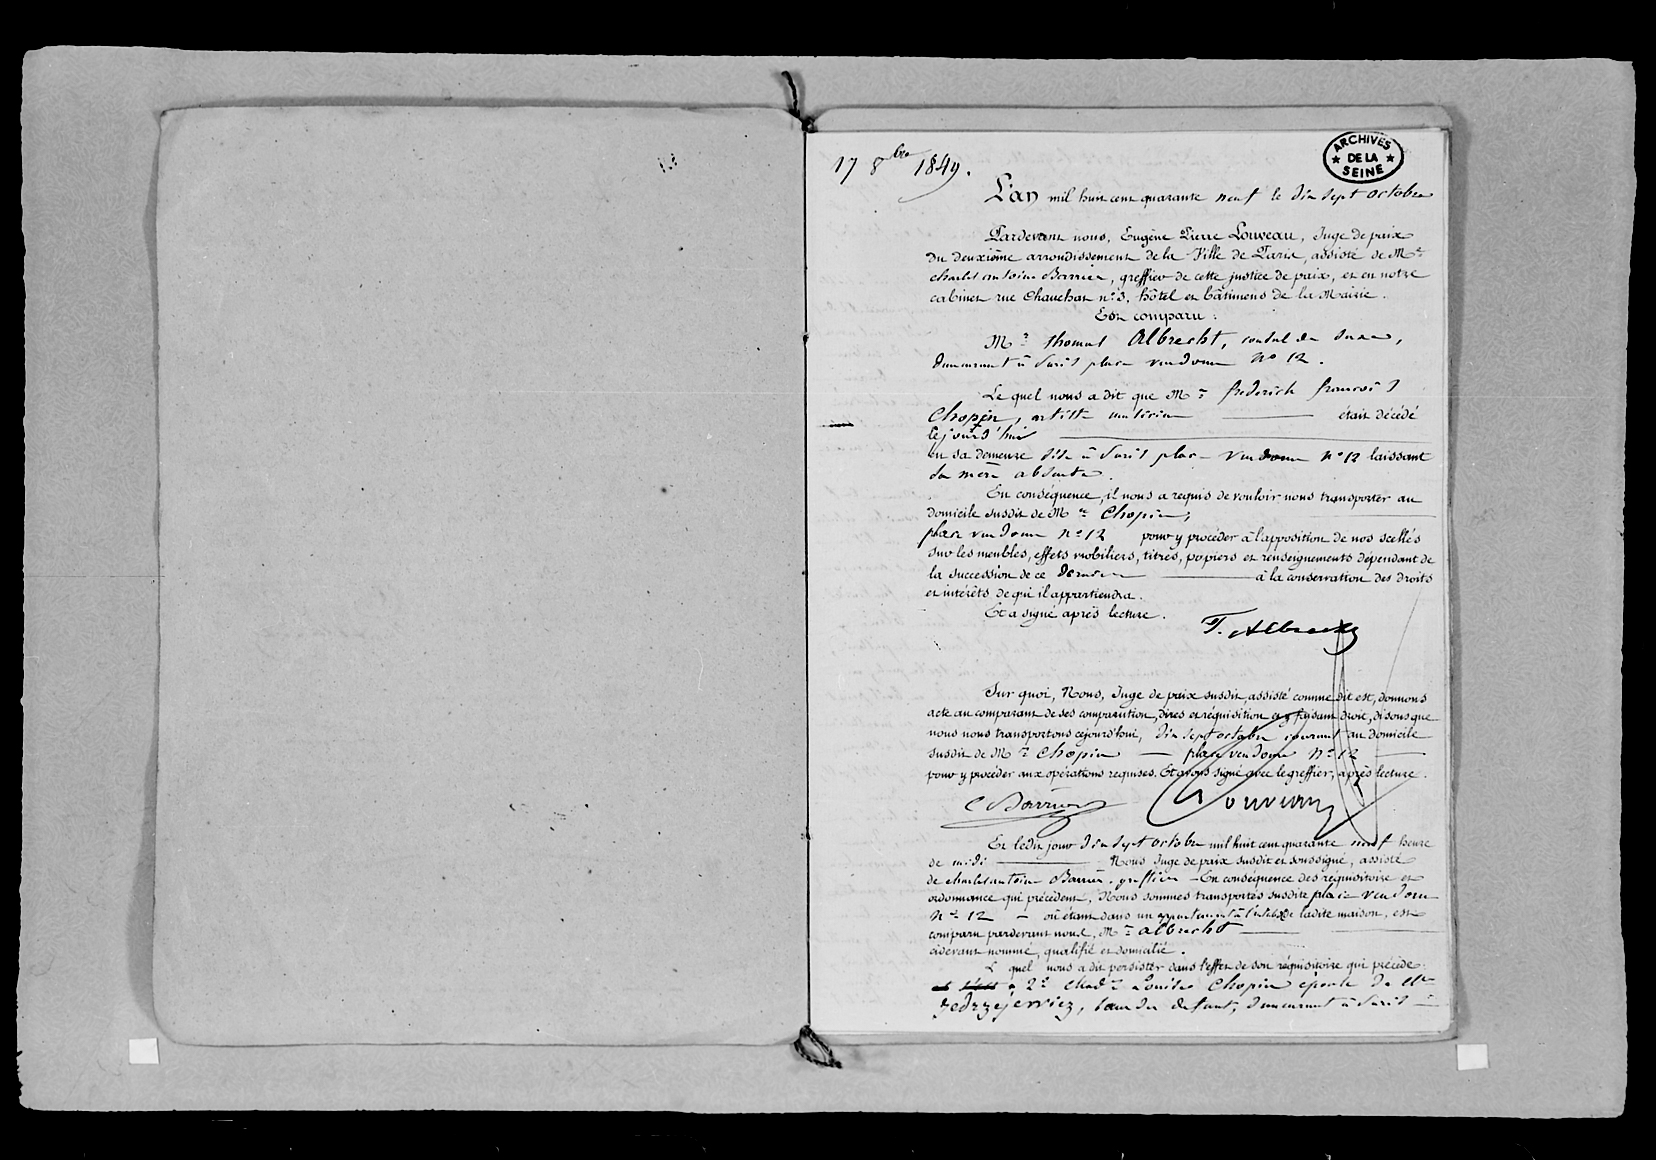 17 8bre 1849.
ARCHIVES
DE LA
SEINE
L'an mil huit cent quarante neuf le dix sept octobre
Pardevant nous, Eugène Pierre Louveau, Juge de paix
du deuxième arrondissement de la Ville de Paris, assisté de Mr
charles antoine Barrier, greffier de cette justice de paix, et en notre
cabinet rue Chauchat no 3, hôtel et bâtimens de la Mairie.
Est comparu:
Mr thomas Albrecht, consul de Saxe,
demeurant à Paris place vendome no 12.
Le quel nous a dit que Mr frederick françois
Chopin, artiste musicien était décédé
cejourd'hui
en sa demeure sise à Paris place Vendome no 12 laissant
sa mère absente.
En conséquence, il nous a requis de vouloir nous transporter au
domicile susdit de Mr Chopin,
place vendome no 12 pour y procéder à l'apposition de nos scellés
sur les meubles, effets mobiliers, titres, papiers et renseignements dépendant de
la succession de ce dernier à la conservation des droits
et intérêts de qui il appartiendra.
Et a signé après lecture.
T. Albrecht
Sur quoi, Nous, Juge de paix susdit, assisté comme dit est, donnons
acte au comparant de ses comparution, dires et réquisition et y faisant droit, disons que
nous nous transportons cejourd'hui, dix sept octobre courant au domicile
susdit de Mr Chopin place vendome no 12
pour y procéder aux opérations requises. Et avons signé avec le greffier, après lecture.
C Barrier Louveau
Et ledit jour dix sept octobre mil huit cent quarante neuf heure
de midi Nous Juge de paix susdit et soussigné, assisté
de charles antoine Barrier, greffier - En conséquence des réquisitoire et
ordonnance qui précèdent, Nous sommes transportés susdite place vendome
no 12 où étant dans un appartement à de ladite maison, est
comparu pardevant nous, Mr albrecht
cidevant nommé, qualifié et domicilié.
L quel nous a dit persister dans l'effet de son réquisitoire qui précède.
2o Made Louise Chopin épouse de Mr
Jedrzejewicz, sœur du defunt, demeurant à Paris